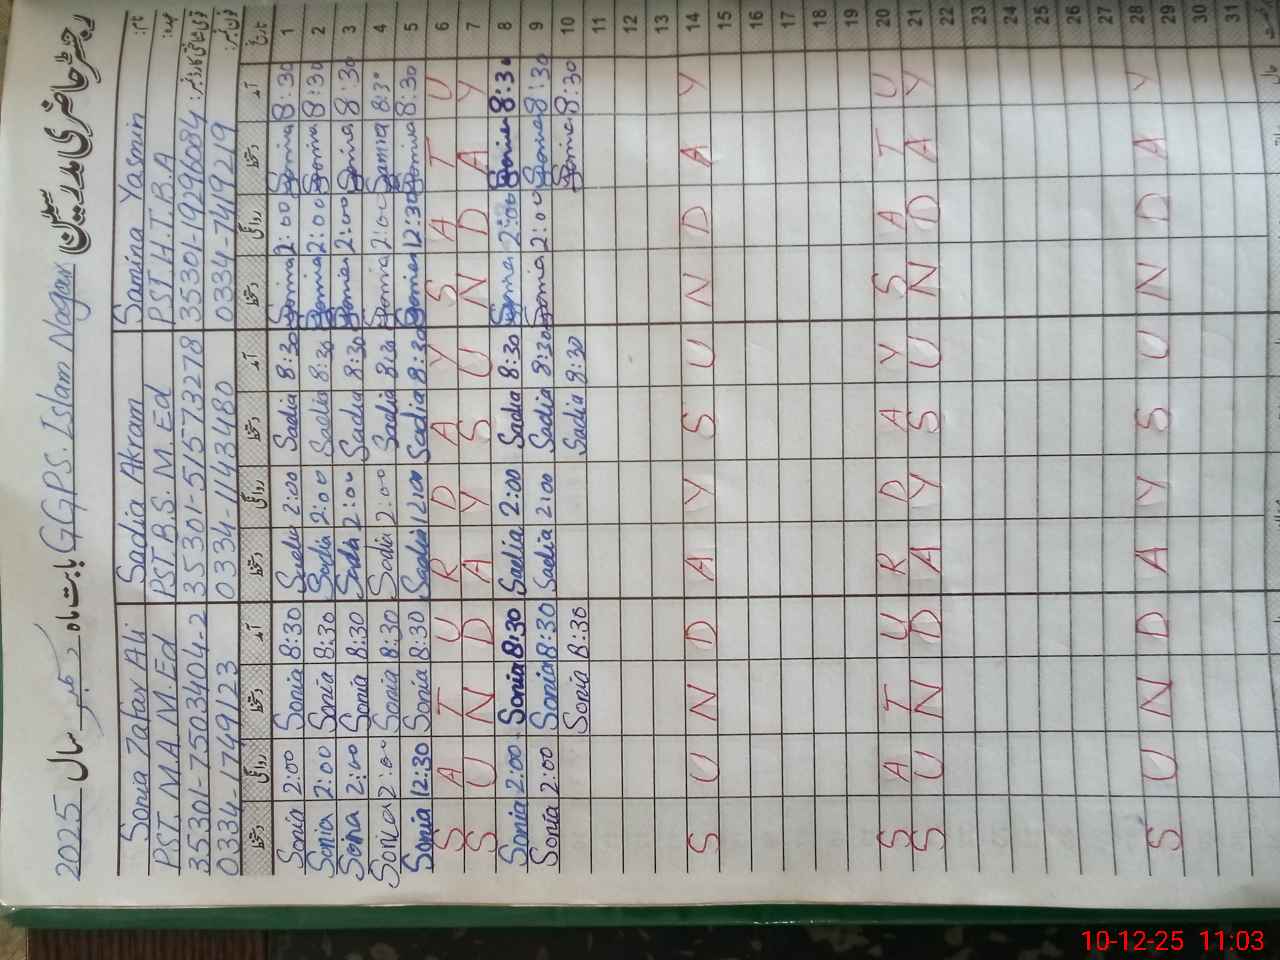 رجسٹر حاضری مدرسین GGPS. Islam Nagar بابت ماہ دسمبر سال 2025
نام: Samina Yasmin Sadia Akram Sonia Zafar Ali
عہدہ: PST.H.T.B.A PST.B.S.M.Ed PST. M.A M.Ed
قومی شناختی کارڈ نمبر: 35301-1929608-4 35301-5157327-8 35301-7503404-2
فون نمبر: 0334-7419219 0334-1143480 0334-1749123
تاریخ آمد دستخط روانگی دستخط آمد دستخط روانگی دستخط آمد دستخط روانگی دستخط
1 8:30 2:00 8:30 Sadia 2:00 Sadia 8:30 Sonia 2:00 Sonia
2 8:30 2:00 8:30 Sadia 2:00 Sadia 8:30 Sonia 2:00 Sonia
3 8:30 2:00 8:30 Sadia 2:00 Sadia 8:30 Sonia 2:00 Sonia
4 8:30 Samina 2:00 8:30 Sadia 2:00 Sadia 8:30 Sonia 2:00 Sonia
5 8:30 12:30 8:30 Sadia 12:00 Sadia 8:30 Sonia 12:30 Sonia
6 S A T U R D A Y S A T U
7 S U N D A Y S U N D A Y
8 8:30 2:00 8:30 Sadia 2:00 Sadia 8:30 Sonia 2:00 Sonia
9 8:30 2:00 8:30 Sadia 2:00 Sadia 8:30 Sonia 2:00 Sonia
10 8:30 8:30 Sadia 8:30 Sonia
11
12
13
14 S U N D A Y S U N D A Y
15
16
17
18
19
20 S A T U R D A Y S A T U
21 S U N D A Y S U N D A Y
22
23
24
25
26
27
28 S U N D A Y S U N D A Y
29
30
31
10-12-25 11:03